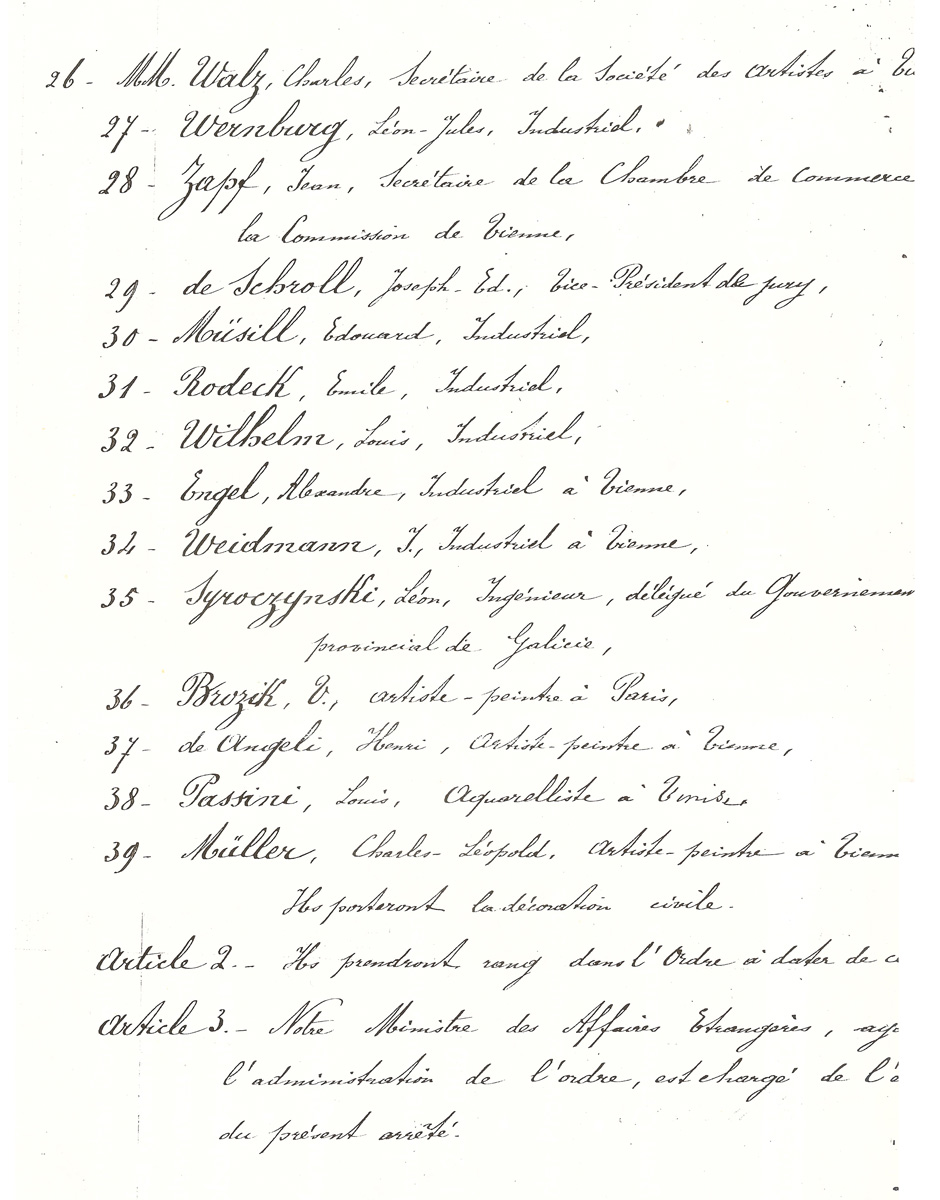 26 - MM. Walz, Charles, Secrétaire de la Société des Artistes à
27 - Wernburg, Léon-Jules, Industriel.
28 - Zapf, Jean, Secrétaire de la Chambre de Commerce
la Commission de Vienne,
29 - de Schroll, Joseph-Ed., Vice-Président de jury,
30 - Müsill, Edouard, Industriel,
31 - Rodeck, Emile, Industriel,
32 - Wilhelm, Louis, Industriel,
33 - Engel, Alexandre, Industriel à Vienne,
34 - Weidmann, J., Industriel à Vienne,
35 - Syroczynski, Léon, Ingénieur, délégué du Gouvernemen
provincial de Galicie,
36 - Brozik, V., artiste-peintre à Paris,
37 - de Angeli, Henri, Artiste-peintre à Vienne,
38 - Passini, Louis, Aquarelliste à Venise,
39 - Müller, Charles-Léopold, Artiste-peintre à Vienn
Ils porteront la décoration civile.
Article 2.- Ils prendront rang dans l'Ordre à dater de c
Article 3.- Notre Ministre des Affaires Etrangères, ay
l'administration de l'ordre, est chargé de l'e
du présent arrêté.